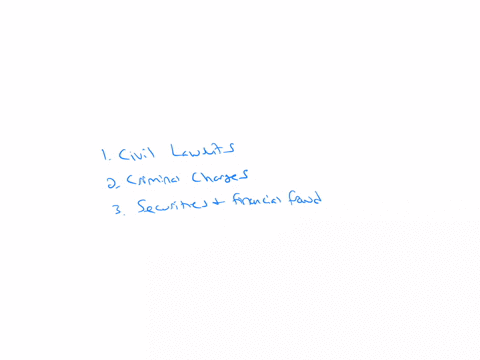 1. Civil Lawsuits
2. Criminal Charges
3. Securities + financial fraud